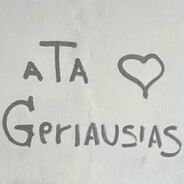 aTA ♡
GeriAUSIAS